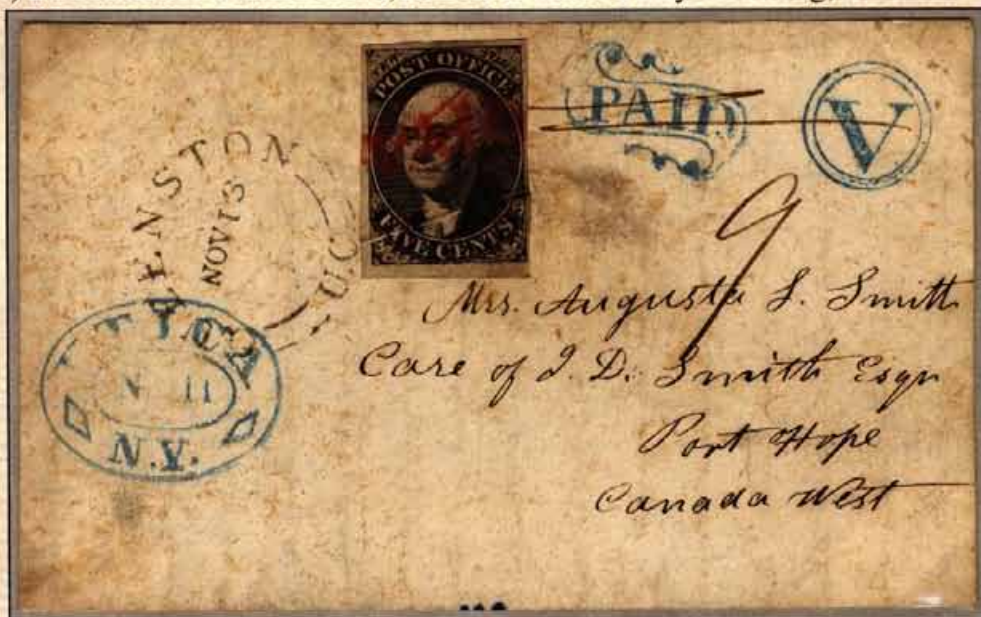 POST OFFICE
FIVE CENTS
PAID
V
ENSTON
NOV 13
U.C.
UTICA
N 11
N.Y.
9
Mrs. Augusta S. Smith
Care of J. D. Smith Esqr
Port Hope
Canada West